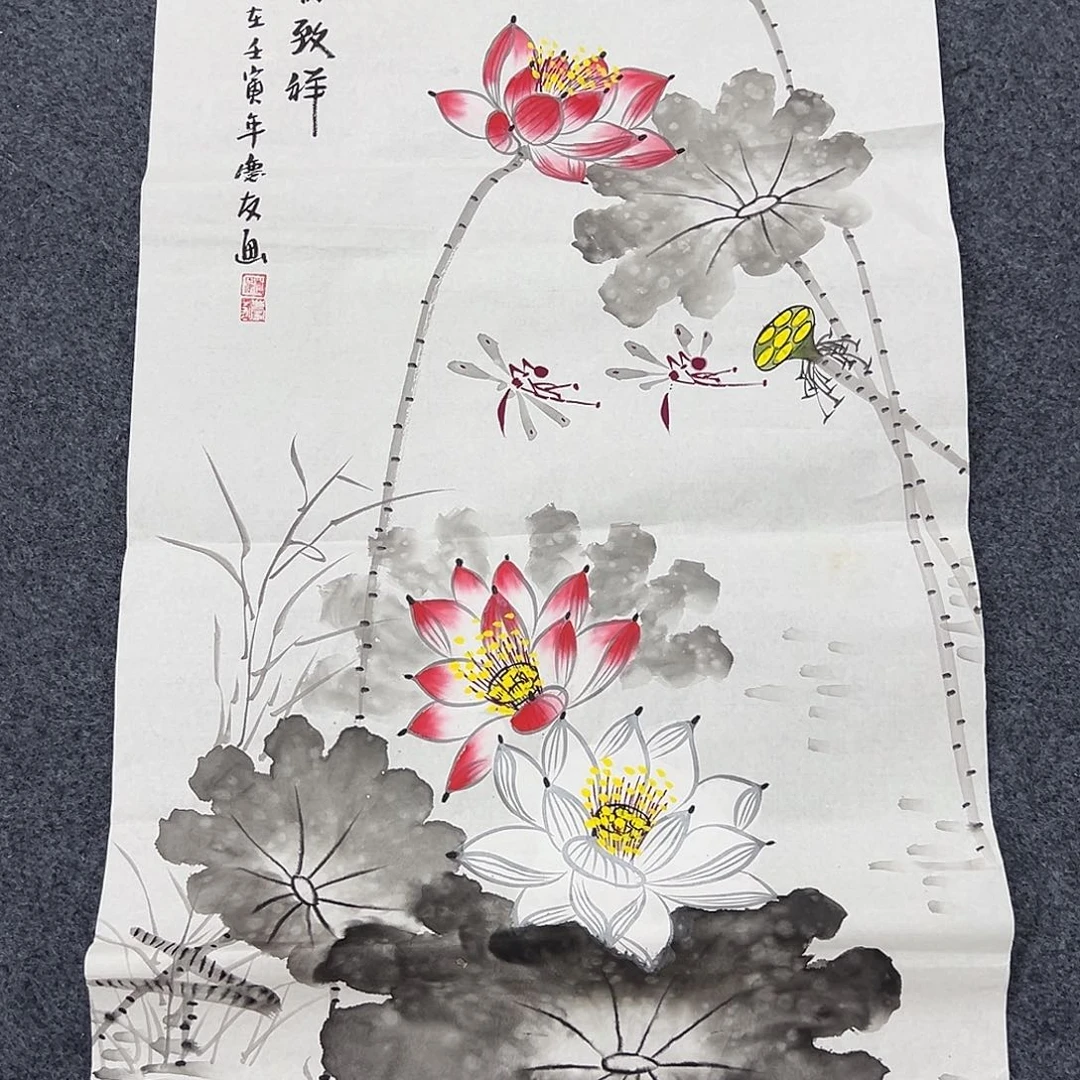 致祥
在壬寅年慶友画